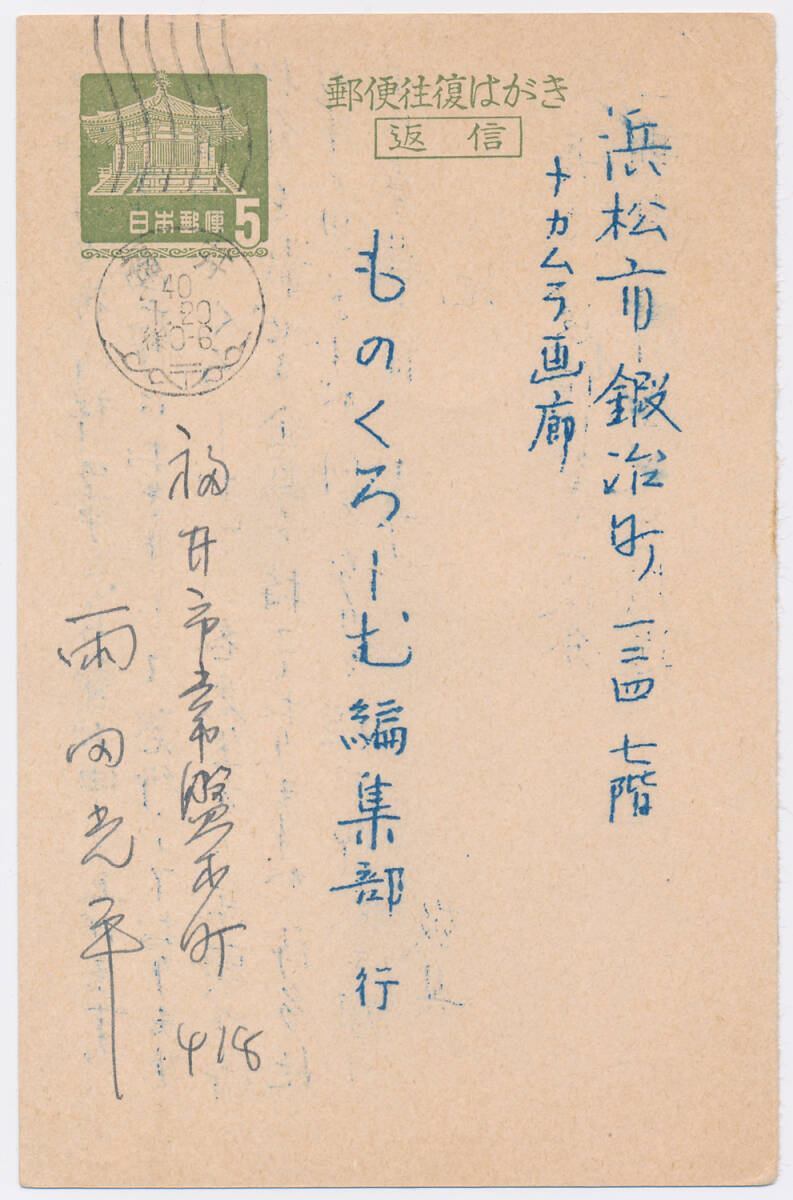 郵便往復はがき
返信
日本郵便 5
40
1.20
後0-6
浜松市鍛冶町一二四 七階
ナカムラ画廊
ものくろーむ編集部 行
福井市常盤木町 418
雨田光平